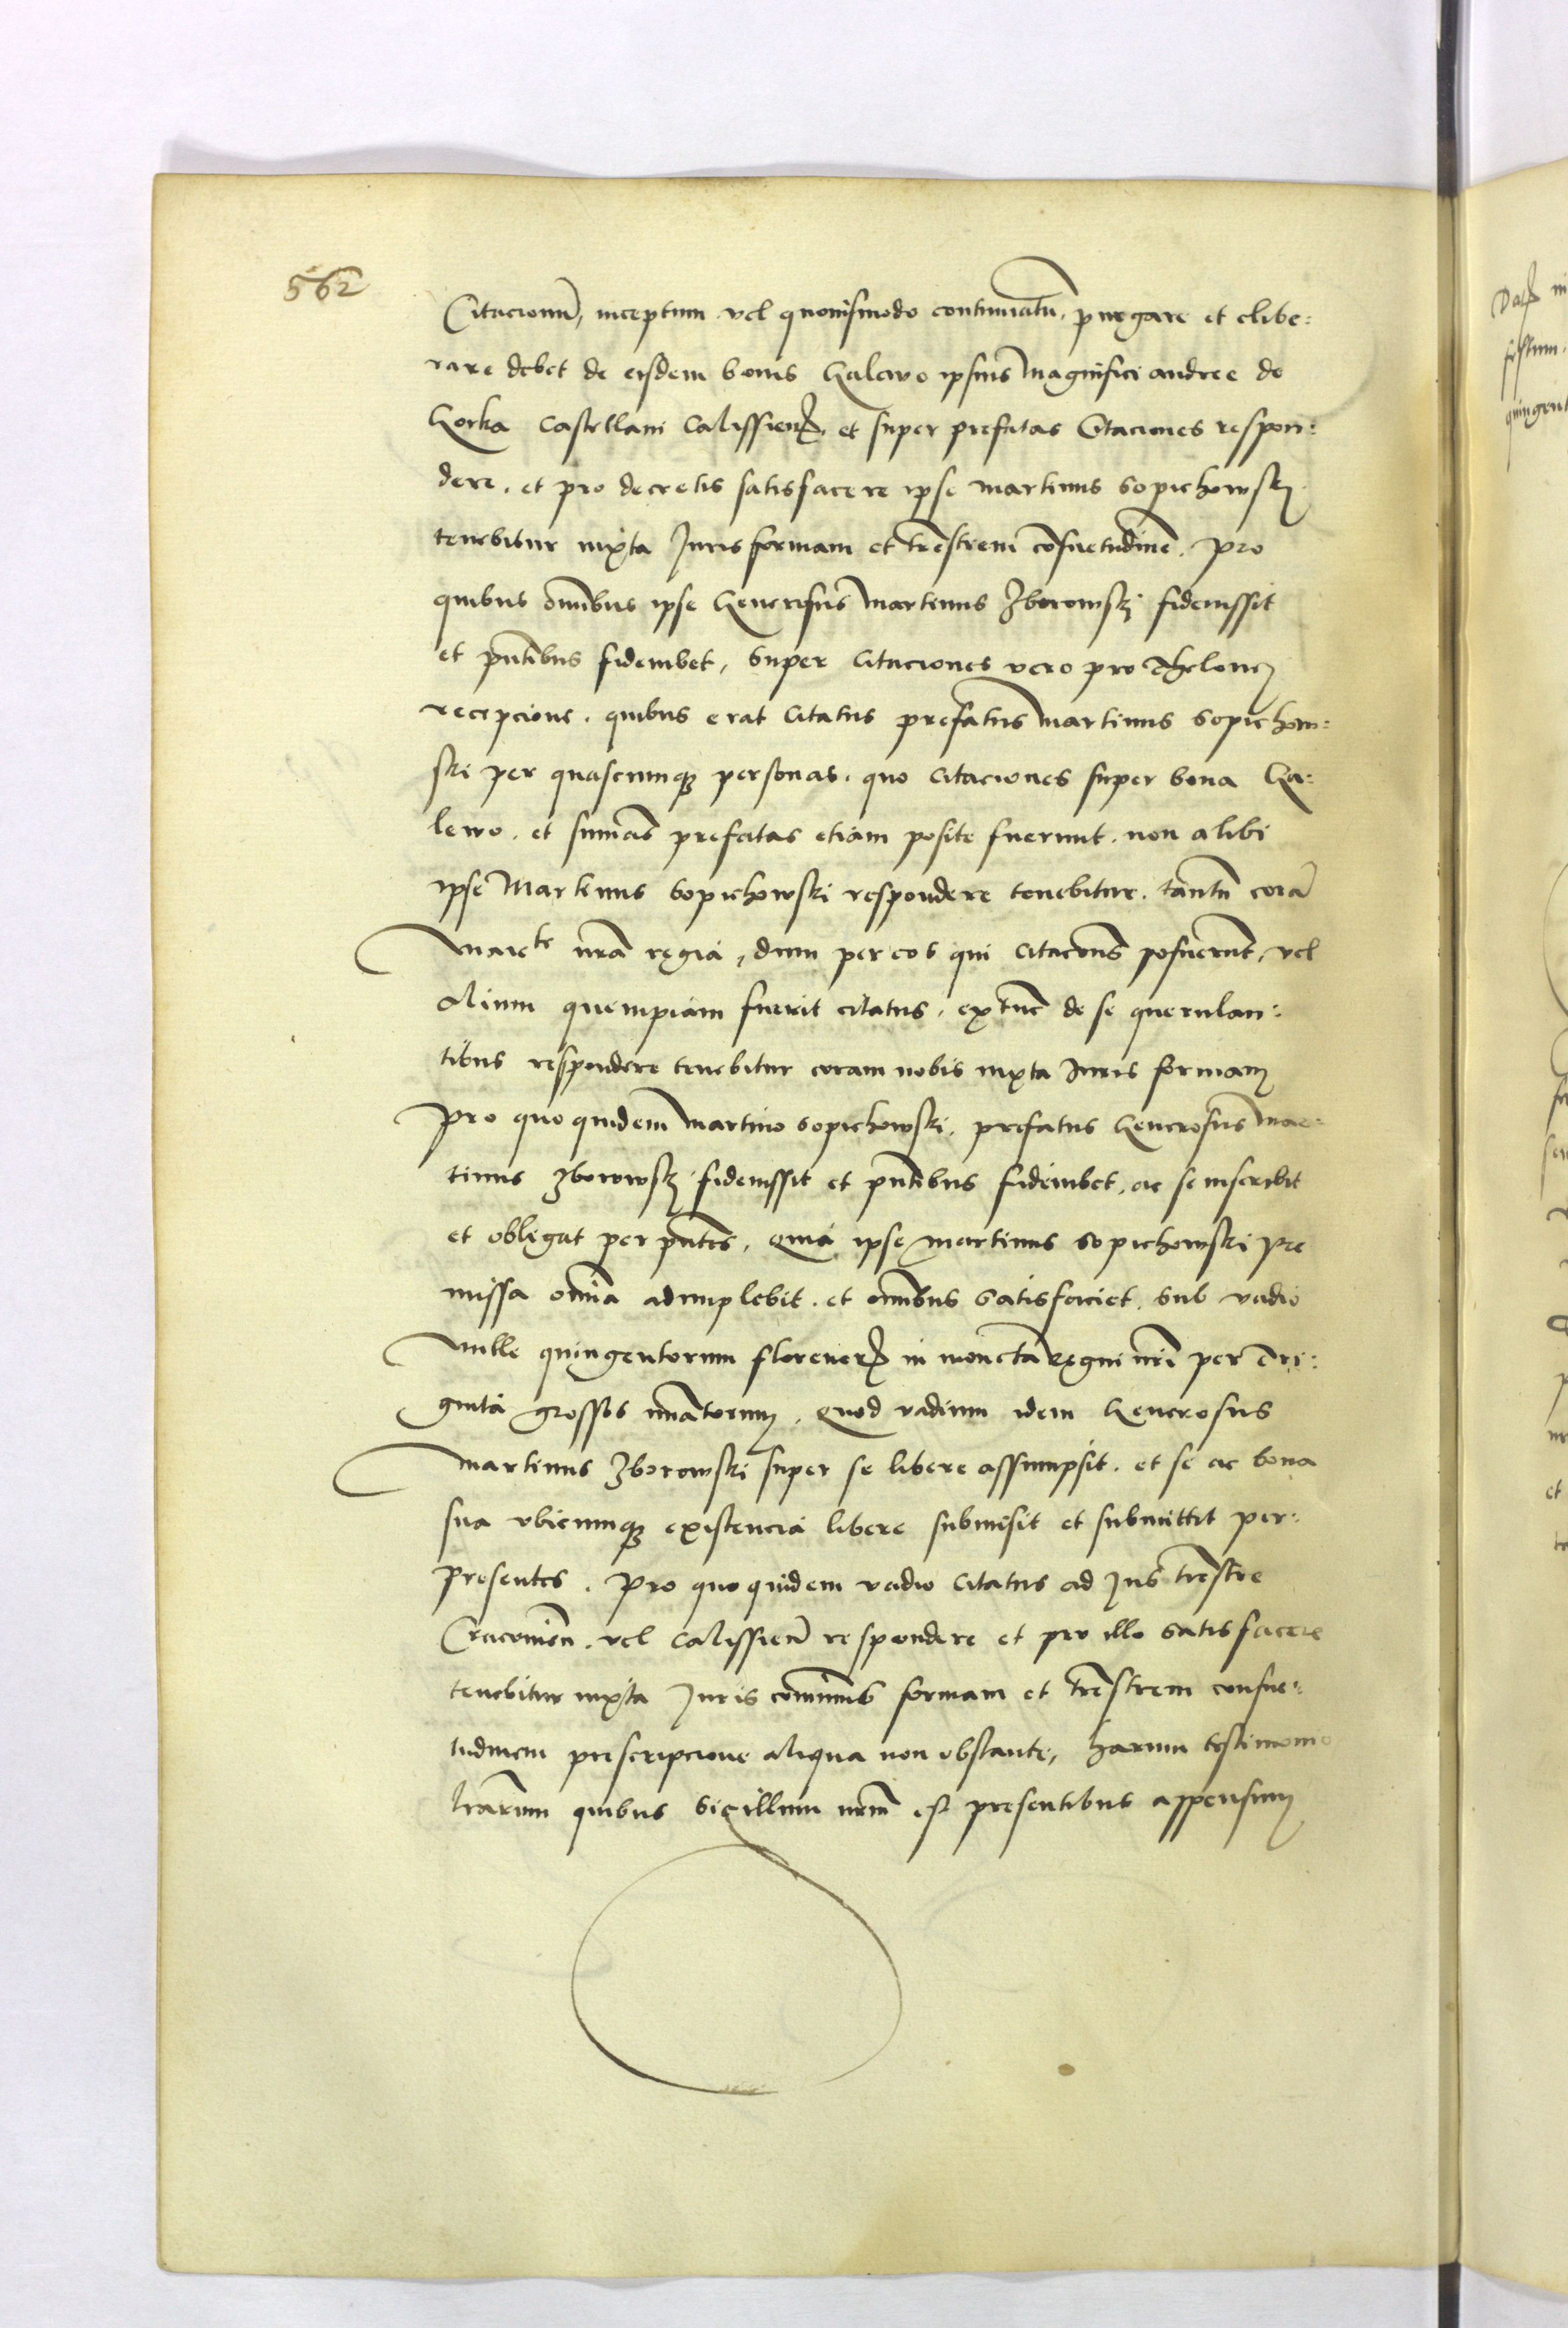 562
Citacionū, inceptum vel quovismodo continuatū, p negare et elibe:
rare debet de eisdem bonis Galewo ipsius Magnifici andree de
Gorka Castellani Calissien. et super prefatas Citaciones respon:
dere. et pro decretis satisfacere ipse martinus Sopichowski
tenebitur iuxta Juris formam et trestrem cōsuetudinē. Pro
quibus omibus ipse Generosus Martinus Zborowski fideiussit
et pntibus fideiubet, Super Citaciones vero pro Theloney
recepcione. quibus erat Citatus prefatus Martinus Sopichow:
ski per quascumque personas. quo Citaciones super bona Ga:
lewo. et summas prefatas etiam posite fuerunt. non alibi
ipse Martinus Sopichowski respondere tenebitur. tantū corā
Maiete nra regia, dum per eos qui citacōes posuerunt, vel
Alium quempiam fuerit citatus, extunc de se querulan:
tibus respondere tenebitur coram nobis iuxta Iuris formam
Pro quo quidem Martino Sopichowski. prefatus Generosus Mar:
tinus Zborowski fideiussit et pntibus fideiubet, ac se inscribit
et obligat per pntes, Quia ipse Martinus Sopichowski pre
missa omnia adimplebit. et omnibus satisfaciet. sub vadio
Mille quingentorum florenor in moneta Regni nri per Tri:
ginta grossos nuatorum, Quod vadium idem Generosus
Martinus Zborowski super se libere assumpsit. et se ac bona
sua vbicumque existencia libere submisit et submittit per:
presentes. Pro quo quidem vadio citatus ad Jus trestre
Cracovien. vel Calissien respondere et pro illo satisfacere
tenebitur iuxta Juris communis formam et trestrem consue:
tudinem prescripcione aliqua non obstante, harum testimonio
lrarum quibus Sigillum nrm est presentibus appensum